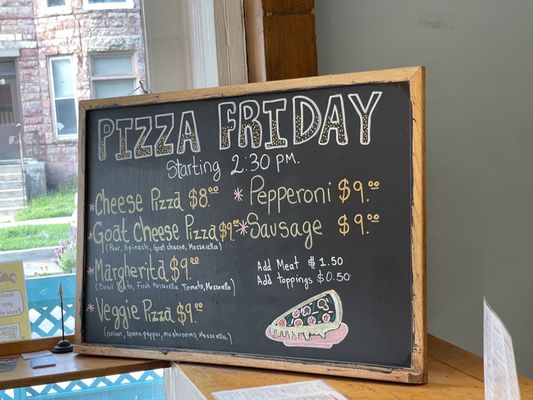 PIZZA FRIDAY
Starting 2:30 PM.
* Cheese Pizza $8.00
* Goat Cheese Pizza $9.00
(Pear, Spinach, Goat cheese, Mozzarella)
* Margherita $9.00
Fresh Mozzarella Tomato, Mozzarella)
* Veggie Pizza $9.00
(onion, Green, pepper, mushrooms, Mozzarella)
* Pepperoni $9.00
* Sausage $9.00
Add Meat $1.50
Add toppings $0.50